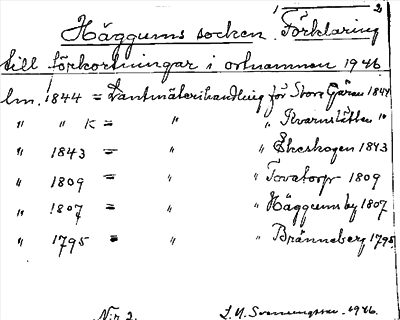 1 2
Häggums socken. Förklaring
till förkortningar i ortnamnen 1946
lm. 1844 = Lantmäterihandling för Stora Gåren 1844
" " K = " " Kvarnslätten "
" 1843 = " " Ekeskogen 1843
" 1809 = " " Tovatorp 1809
" 1807 = " " Häggums by 1807
" 1795 = " " Bränneberg 1795
N:r 2. L. N. 1946.